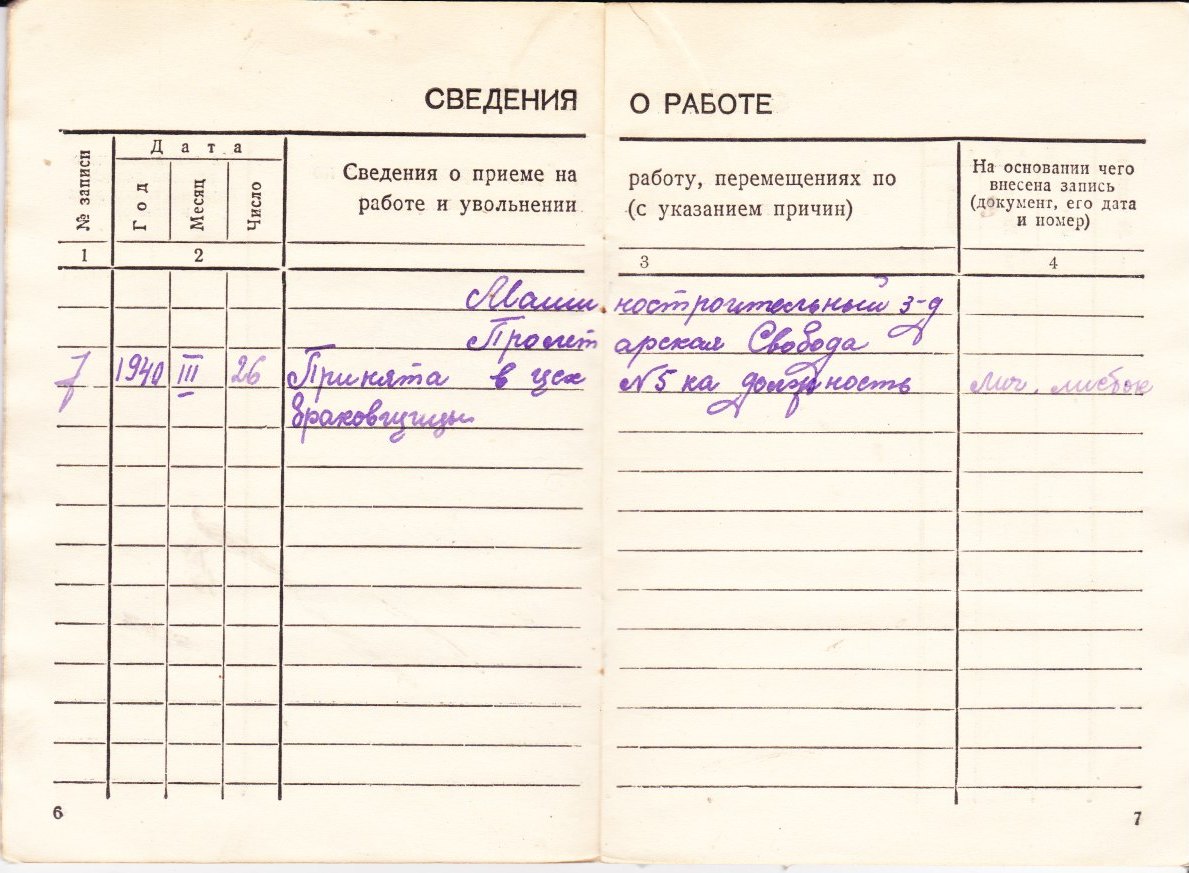 СВЕДЕНИЯ О РАБОТЕ
№ записи
Дата
Год
Месяц
Число
Сведения о приеме на работу, перемещениях по
работе и увольнении (с указанием причин)
На основании чего
внесена запись
(документ, его дата
и номер)
1 2 3 4
Машиностроительный з-д
Пролетарская Свобода
7 1940 III 26 Принята в цех №5 на должность лич. листок
браковщицы
6 7